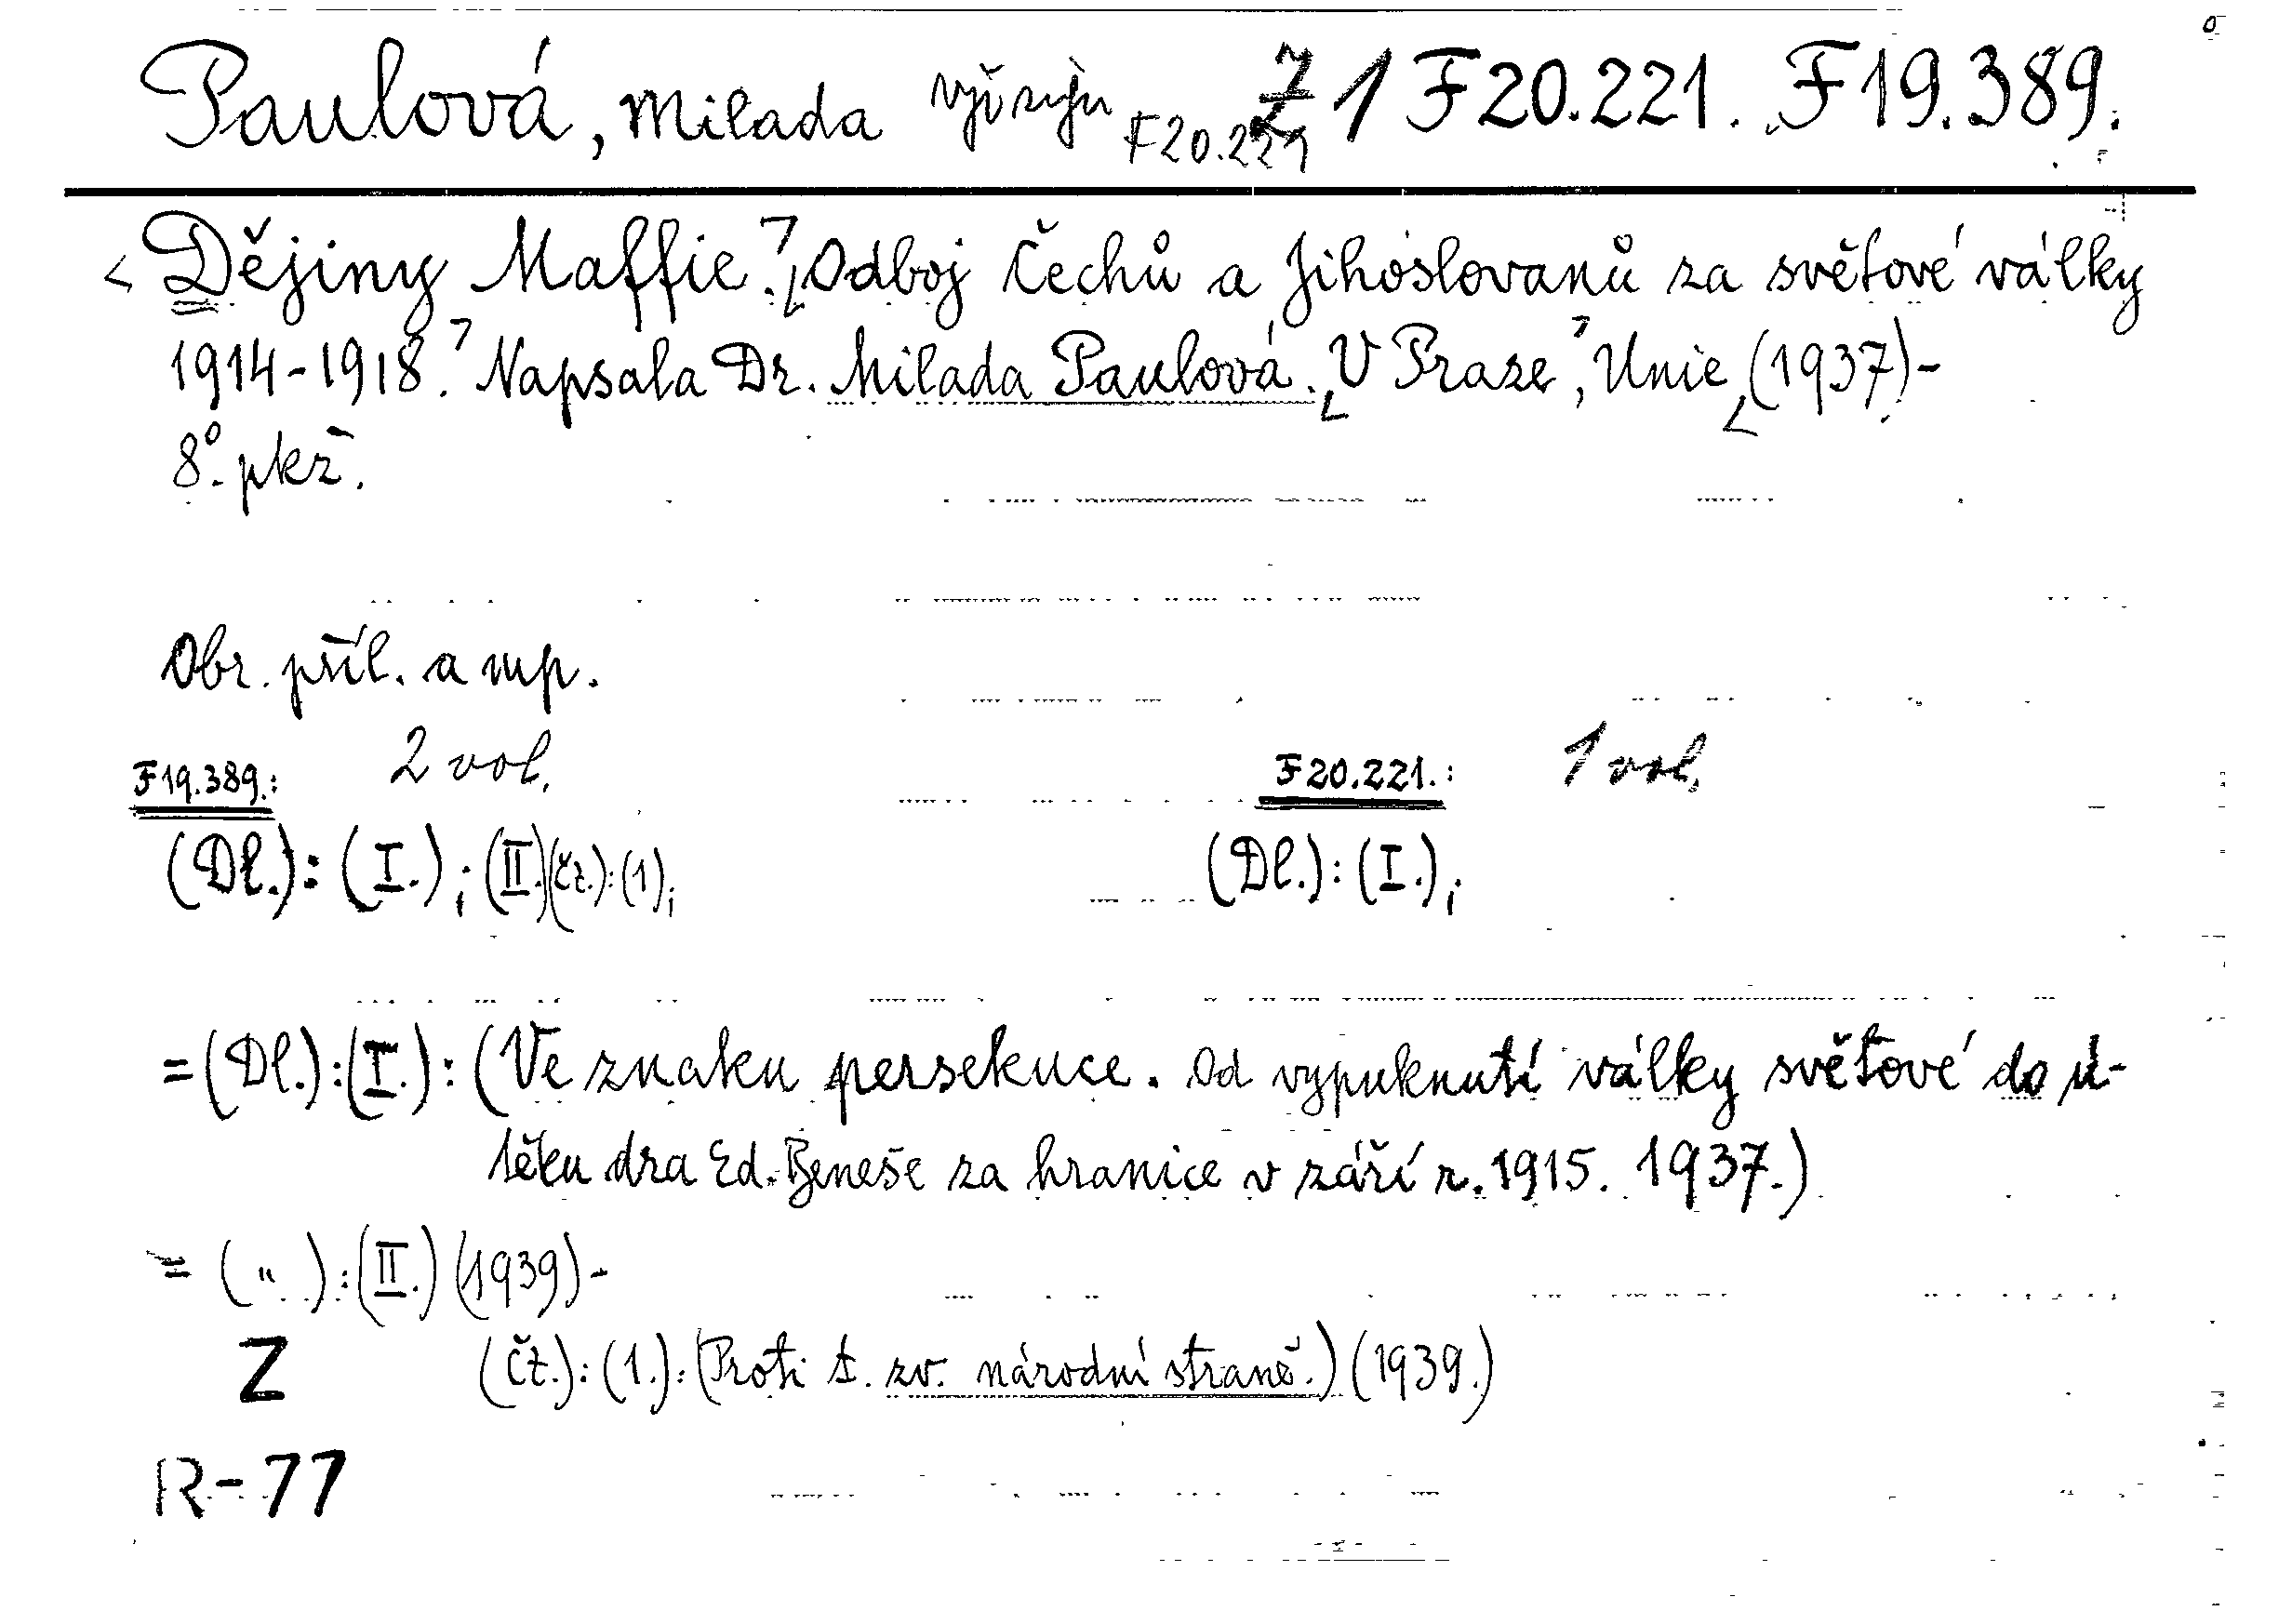 Paulová, Milada F20.221 Z 1 F20.221. F19.389.
Dějiny Maffie. Odboj Čechů a Jihoslovanů za světové války
1914-1918. Napsala Dr. Milada Paulová. V Praze, Unie, (1937)-
8°. pkž.
Obr. příl. a mp.
F19.389.: 2 vol. F20.221.: 1 vol.
(Dl.): (I.); (II.)(čt.):(1); (Dl.): (I.);
=(Dl.):(I.): (Ve znaku persekuce. Od vypuknutí války světové do ú-
těku dra Ed. Beneše za hranice v září r. 1915. 1937.)
= ( " ):(II.) (1939)-
Z (čt.): (1.): (Proti t. zv. národní straně.) (1939.)
R-77